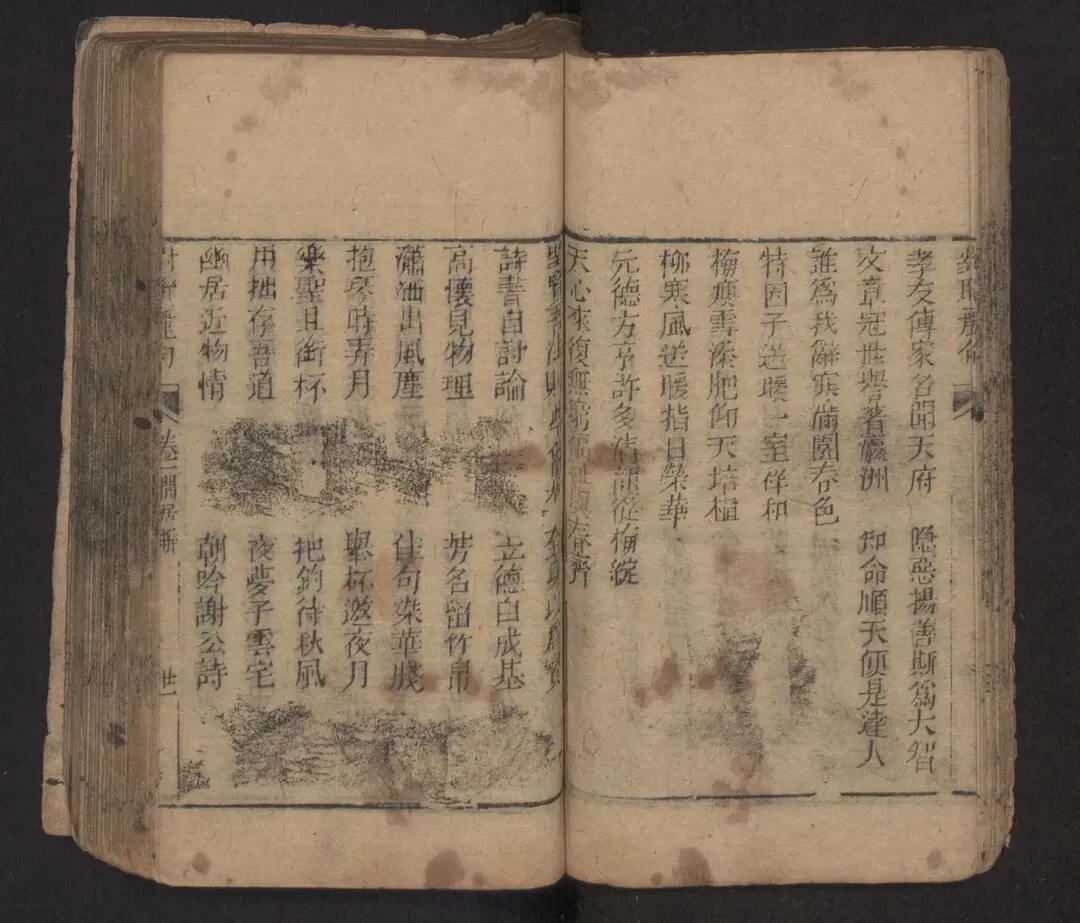 孝友傳家名聞天府　隱惡揚善斯爲大智
文章冠世譽著瀛洲　知命順天便是達人
誰爲我辭寒滿園春色
特因子送暖一室佯和
梅瘦雪添肥仰天培植
柳寒風送暖指日榮華
元德方亨許多清韻從梅綻
天心來復無窮
詩書自討論　立德白成基
高懷見物理　芳名留竹帛
瀟洒出風塵　佳句染華牋
抱琴時弄月　舉杯邀夜月
樂聖且銜杯　把釣待秋風
用拙存吾道　夜夢子雲宅
幽居近物情　朝吟謝公詩
卷一閒居聯